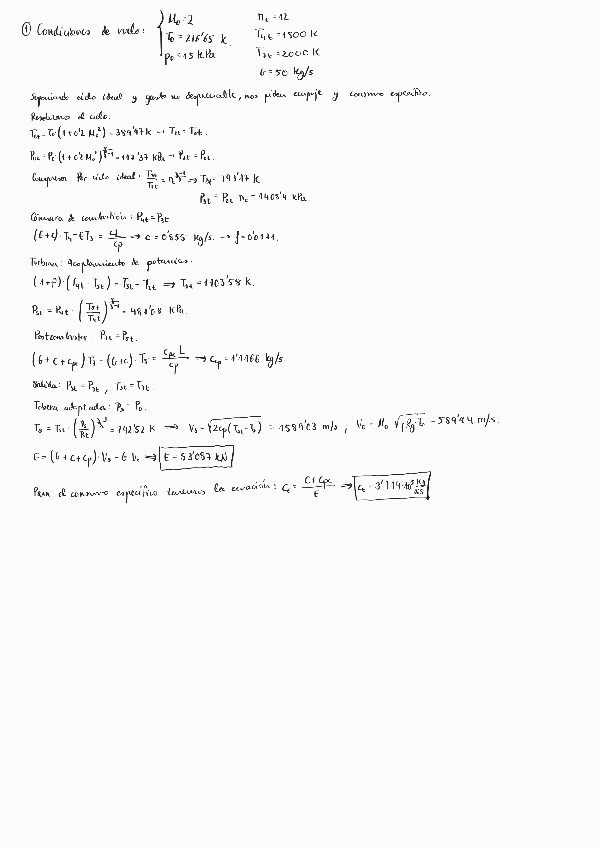 ① Condiciones de vuelo: { M₀=2 π_c=12
T₀=216'65 K. T₄t=1500 K
p₀=15 KPa T₇t=2000 K
G=50 kg/s
Suponiendo ciclo ideal y gasto no despreciable, nos piden empuje y consumo específico.
Resolvemos el ciclo.
T₀t=T₀(1+0'2 M₀²)=389'97 K → T₂t=T₀t.
P₀t=P₀(1+0'2 M₀²)^(γ/γ-1)=117'37 KPa → P₂t=P₀t.
Compresor: Por ciclo ideal: T₃t/T₂t=π_c^(γ-1/γ) → T₃t= 793'17 K
P₃t= P₂t π_c =1408'4 KPa.
Cámara de combustión: P₄t=P₃t
(G+c)·T₄-GT₃=cL/cp → c=0'858 kg/s. → f=0'0171.
Turbina: Acoplamiento de potencias.
(1+f)·(T₄t-T₅t)=T₃t-T₂t ⇒ T₅t=1103'58 K.
P₅t=P₄t·(T₅t/T₄t)^(γ/γ-1)=481'08 KPa.
Postcombustor: P₇t=P₅t.
(G+c+cpc)T₇-(G+c)·T₅=cpc L/cp → cp=1'1166 kg/s
Salida: P₉t=P₇t, T₉t=T₇t.
Tobera adaptada: P₉=P₀.
=742'52 K → V₉=√2cp(T₉t-T₉) = 1589'03 m/s, V₀=M₀√γRgT₀=589'44 m/s.
E=(G+c+cp)·V₉-G·V₀ → E=53'087 KN
Para el consumo específico tenemos la ecuación: C_E=c+cpc/E →